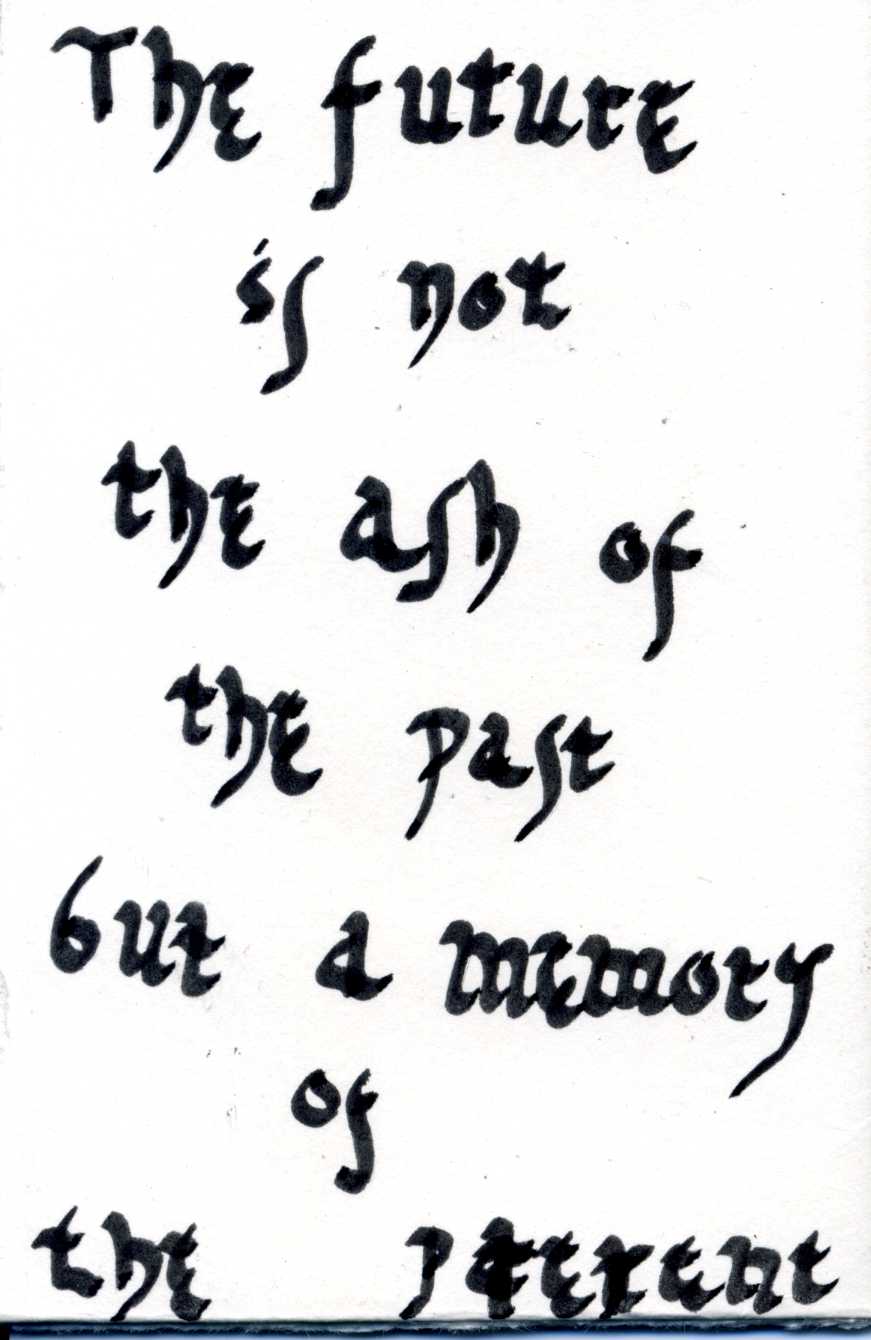 The future
is not
the ash of
the past
but a memory
of
the present